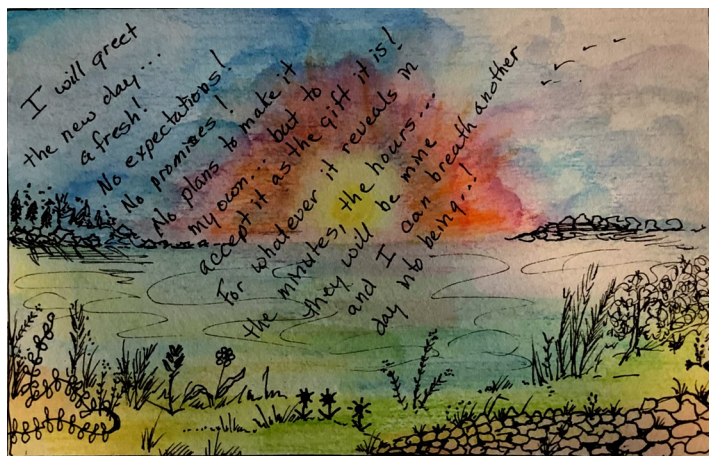 I will greet
the new day...
afresh!
No expectations!
No promises!
No plans to make it
my own... but to
accept it as the gift it is!
For whatever it reveals in
the minutes, the hours...
they will be mine
and I can breath another
day into being...!